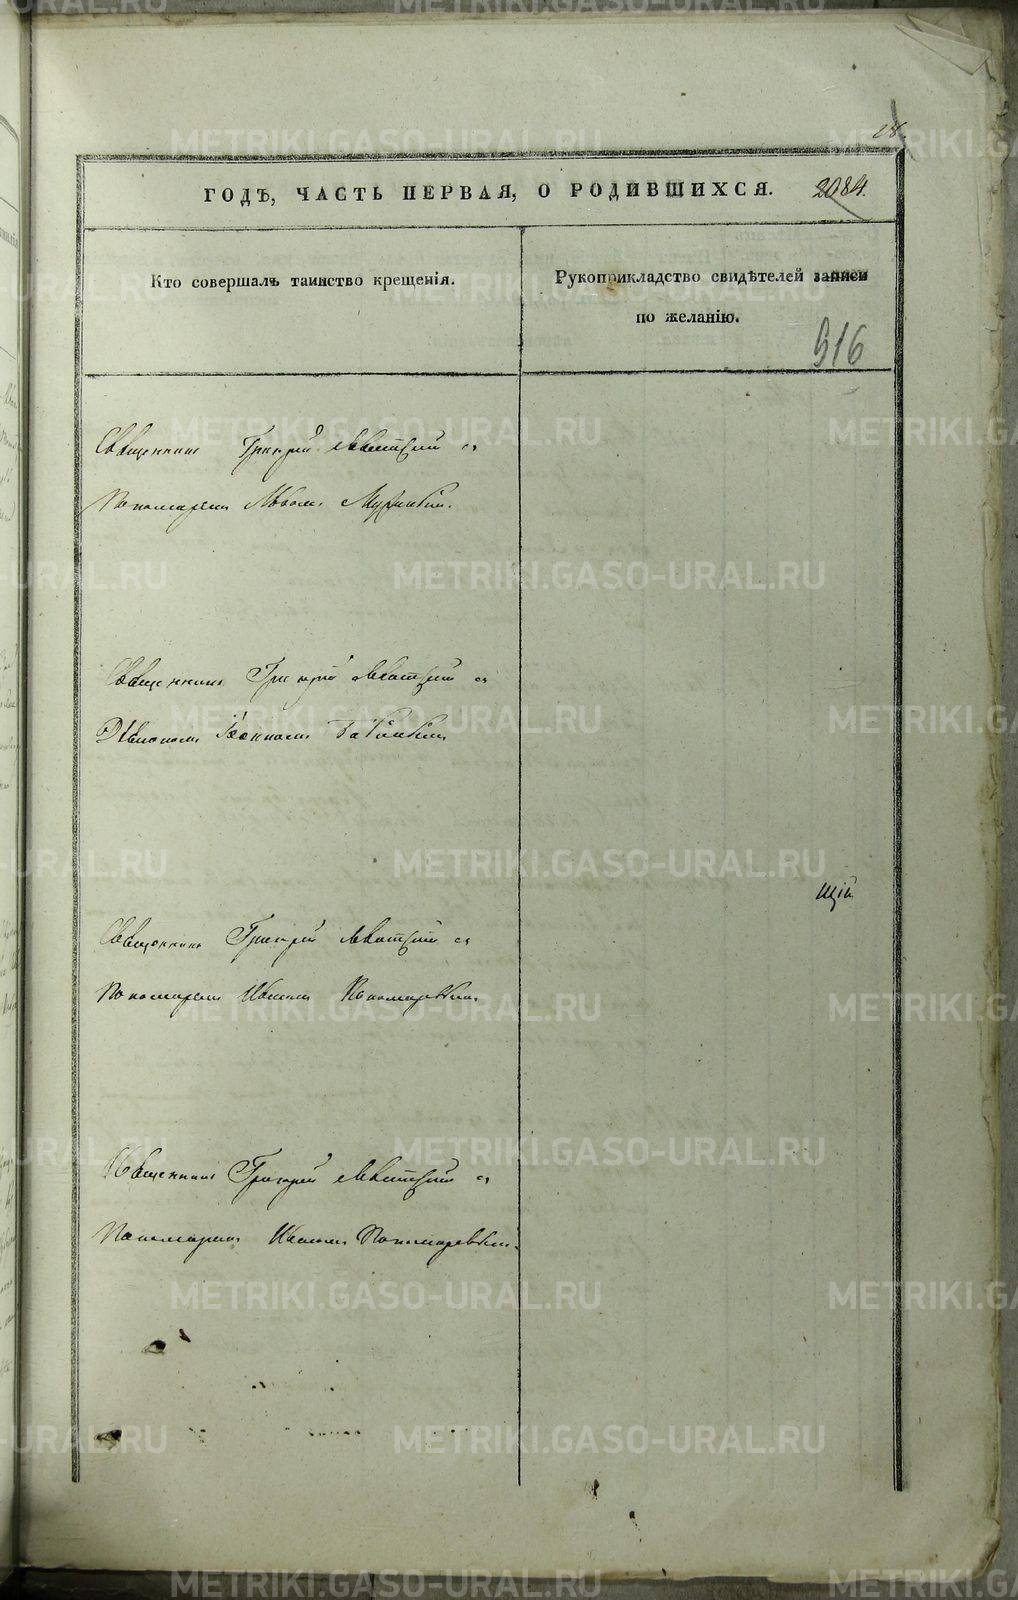 28.
ГОДЪ, ЧАСТЬ ПЕРВАЯ, О РОДИВШИХСЯ. 2084.
Кто совершалъ таинство крещенія.
Рукоприкладство свидѣтелей записи
по желанію.
916
Священникъ Григорій съ
Пономаремъ
Священникъ Григорій съ
Діакономъ Іоанномъ
щій
Священникъ Григорій съ
Пономаремъ Иваномъ Пономаревымъ
Священникъ Григорій съ
Пономаремъ Иваномъ Пономаревымъ.
METRIKI.GASO-URAL.RU